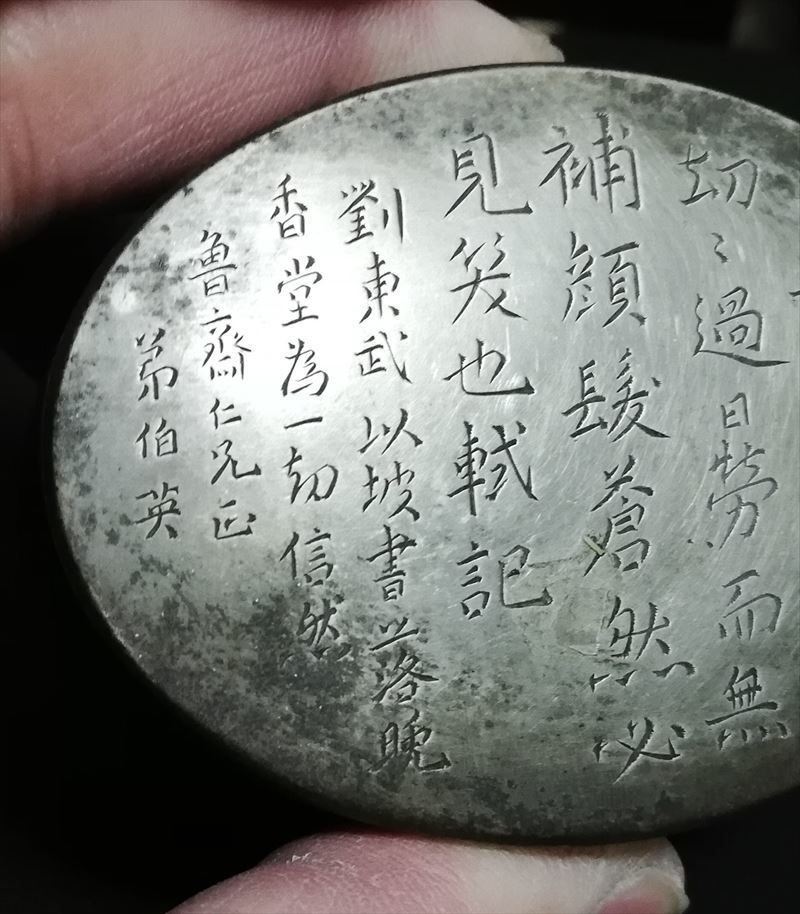 刧〻過日勞而無
補顏髮蒼然必
見笑也軾記
劉東武以坡書之落晚
香堂為一刧信然
魯齋仁兄正
弟伯英